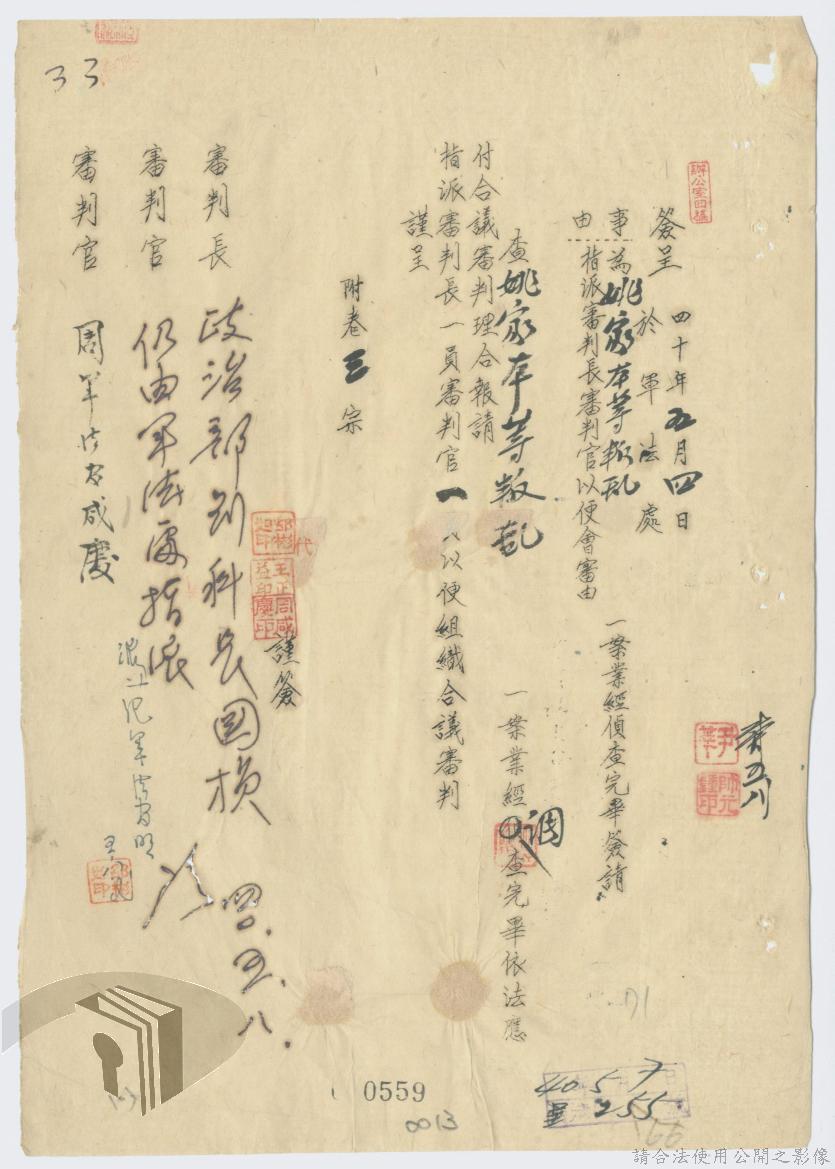 簽呈 四十年五月四日
於軍法處
事由 為姚家本等叛亂一案業經偵查完畢簽請
指派審判長審判官以便會審由
查姚家本等叛亂一案業經調查完畢依法應
付合議審判理合報請
指派審判長一員審判官一員以便組織合議審判
謹呈
附卷三宗
謹簽
審判長 政治部 科長國楨
審判官 仍由軍法處指派
審判官 周軍法官咸慶
四〇.五.八.
33
代
40 5 7
255
0559
0013
請合法使用公開之影像